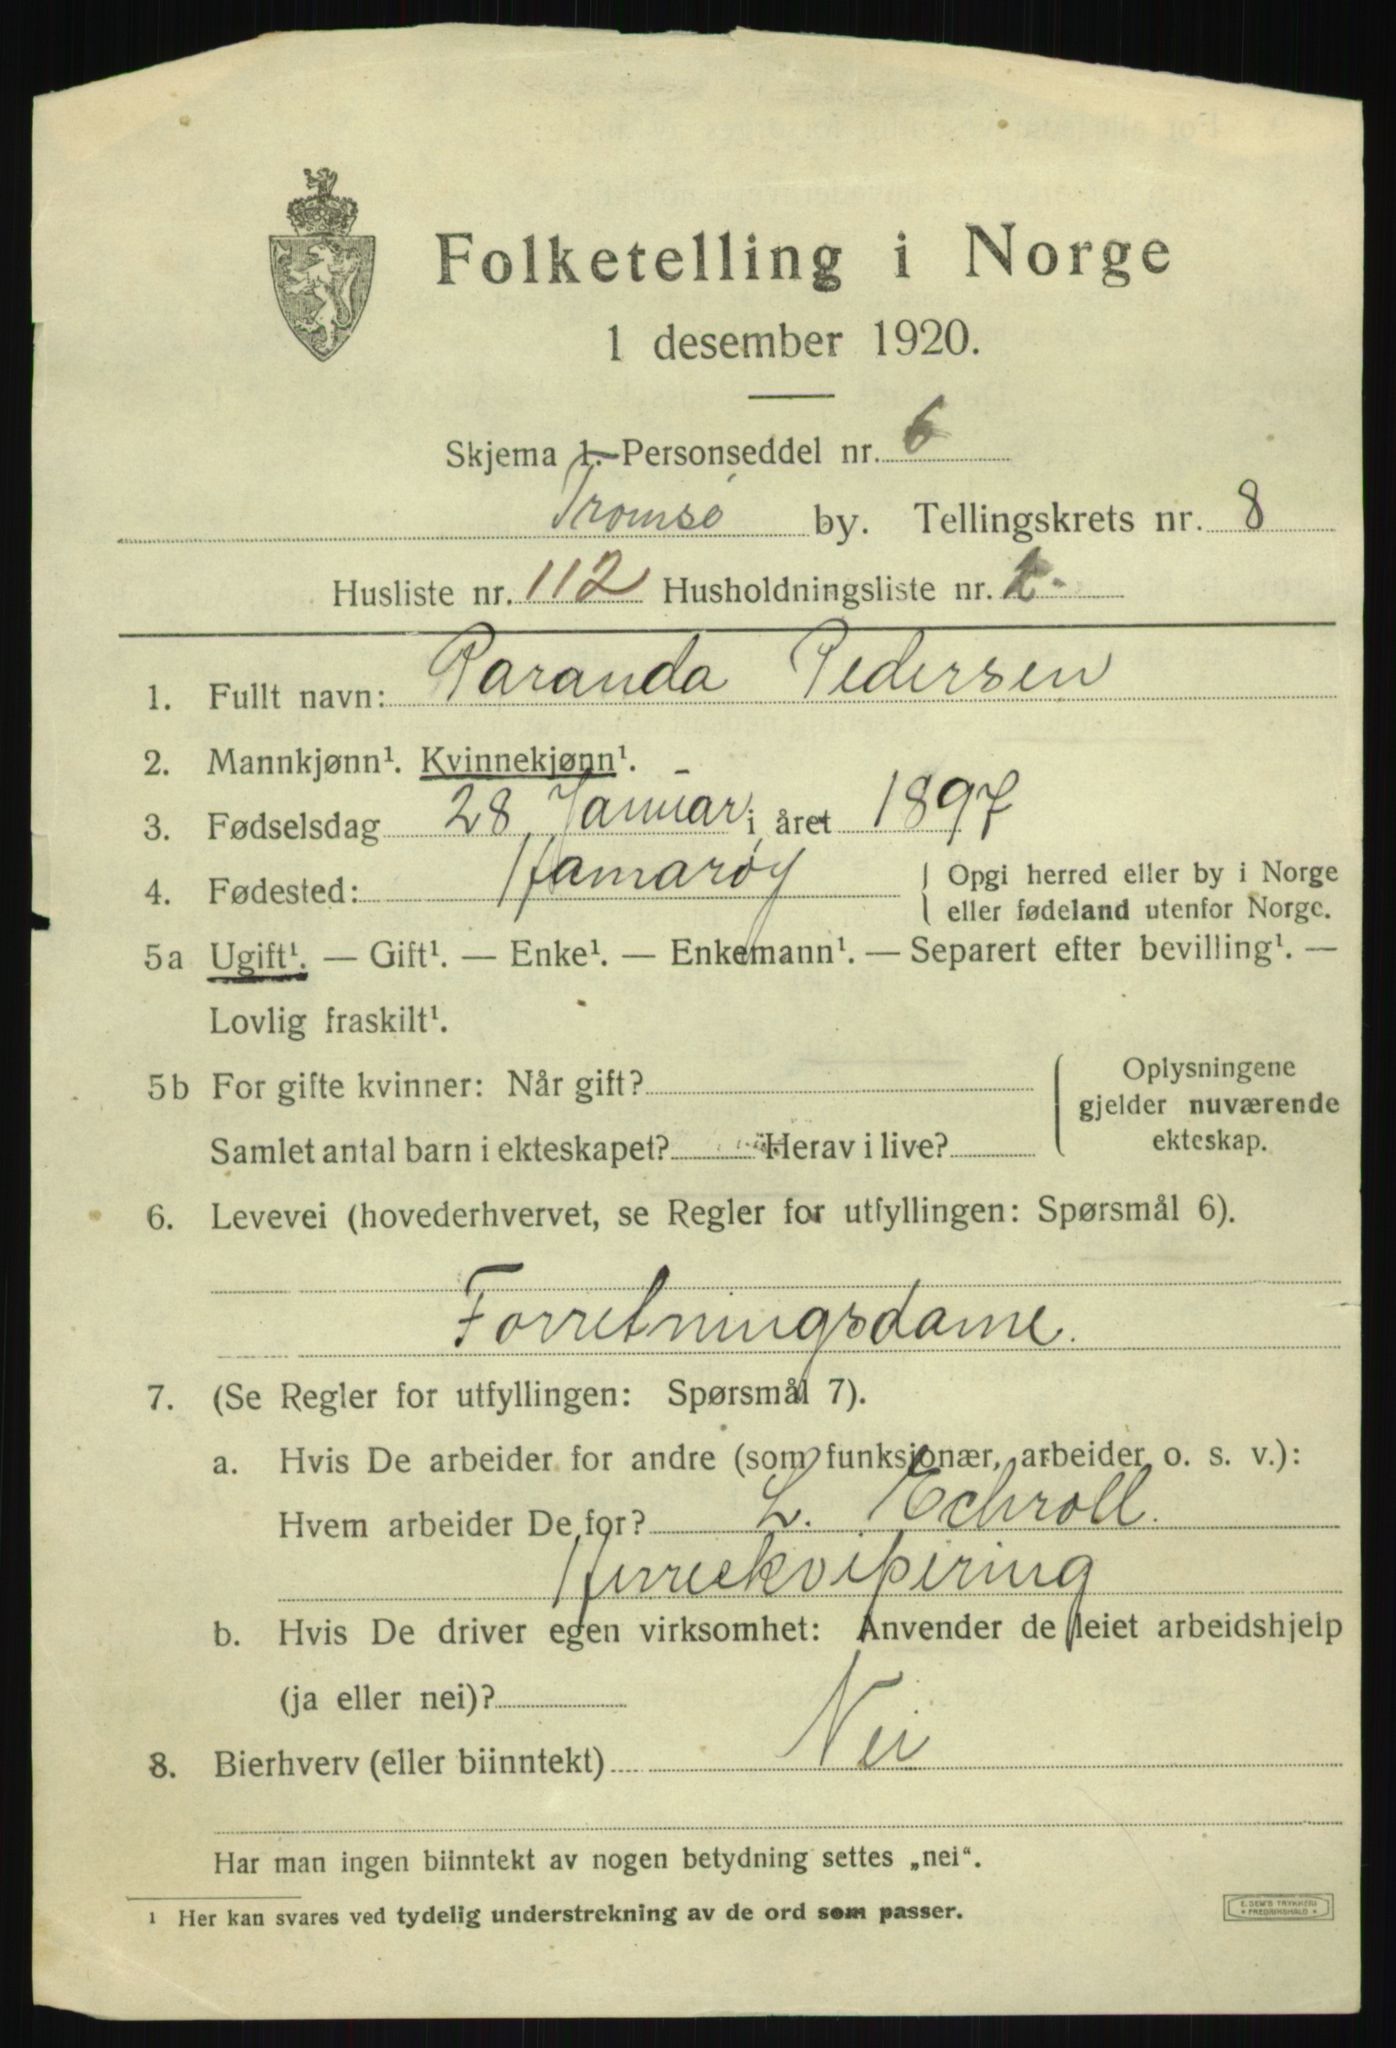 Folketelling i Norge
1 desember 1920.
Skjema 1. Personseddel nr. 6
Tromsø by. Tellingskrets nr. 8
Husliste nr. 112 Husholdningsliste nr.
1. Fullt navn: Paranda Pedersen
2. Mannkjønn¹. Kvinnekjønn¹.
3. Fødselsdag 28 Januar i året 1897
4. Fødested: Hamarøy { Opgi herred eller by i Norge
eller fødeland utenfor Norge.
5a Ugift¹. — Gift¹. — Enke¹. — Enkemann¹. — Separert efter bevilling¹. —
Lovlig fraskilt¹.
5b For gifte kvinner: Når gift? { Oplysningene
gjelder nuværende
Samlet antal barn i ekteskapet? Herav i live? ekteskap.
6. Levevei (hovederhvervet, se Regler for utfyllingen: Spørsmål 6).
Forretningsdame.
7. (Se Regler for utfyllingen: Spørsmål 7).
a. Hvis De arbeider for andre (som funksjonær, arbeider o. s. v.):
Hvem arbeider De for? L. Echroll.
Herreekvipering
b. Hvis De driver egen virksomhet: Anvender de leiet arbeidshjelp
(ja eller nei)?
8. Bierhverv (eller biinntekt) Nei
Har man ingen biinntekt av nogen betydning settes „nei“.
¹ Her kan svares ved tydelig understrekning av de ord som passer.
E. SEM'S TRYKKERI
FREDRIKSHALD